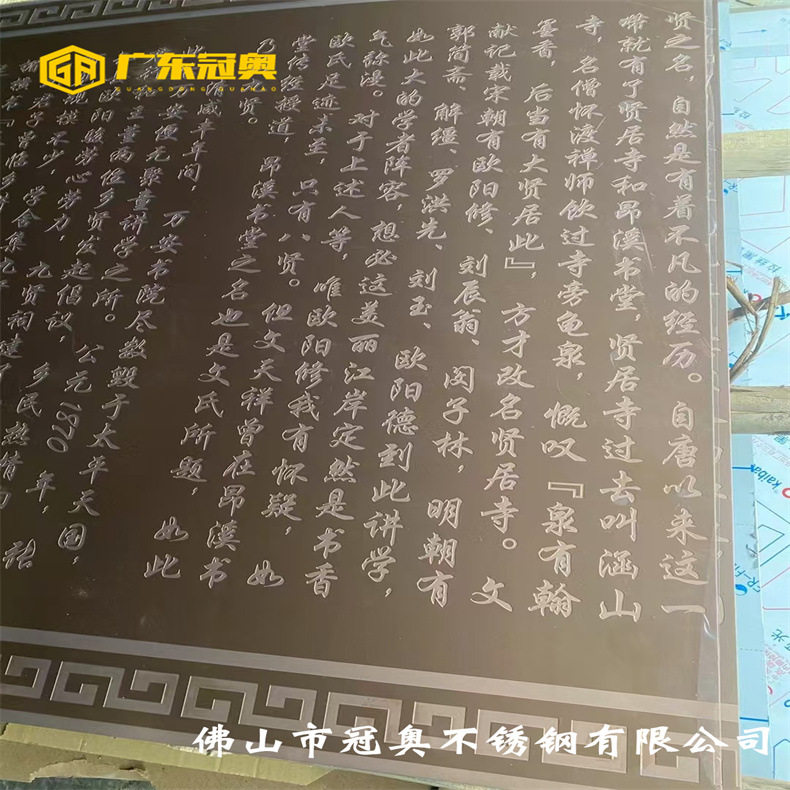 广东冠奥
GUANGDONG GUANAO
贤之名，自然是有着不凡的经历。自唐以来这一
带就有了贤居寺和昂溪书堂，贤居寺过去叫涵山
寺，名僧怀渡禅师饮过寺旁龟泉，慨叹『泉有翰
墨香，后当有大贤居此』，方才改名贤居寺。文
献记载宋朝有欧阳修、刘辰翁、闵子林，明朝有
郭简斋、解缰、罗洪先、刘玉、欧阳德到此讲学，
如此大的学者阵容，想必这美丽江岸定然是书香
气弥漫。对于上述人等，唯欧阳修我有怀疑，如
欧氏足迹未至，只有八贤。但文天祥曾在昂溪书
堂传经授道，昂溪书堂之名也是文氏所题，如此
乃九贤。
清咸丰年间，万安书院尽数毁于太平天国，
万安便无聚童讲学之所。公元1870年，
董两位乡贤发起倡议，乡民热情
欧阳 劳心劳力，
规模不少，学舍集
佛山市冠奥不锈钢有限公司